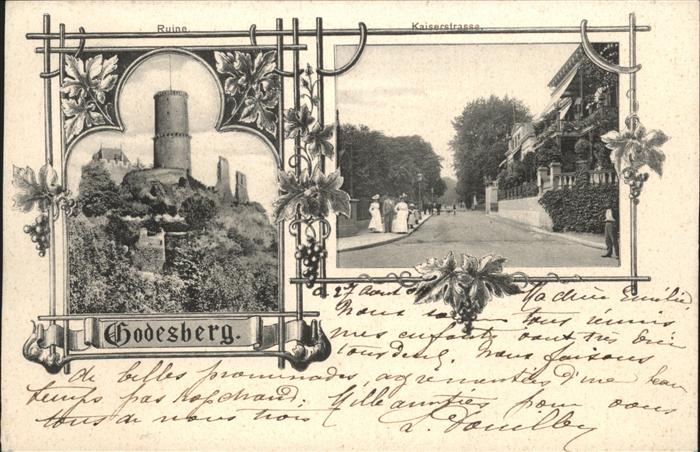 Ruine.
Kaiserstrasse.
Godesberg.
27 Août
Ma chère Emilie
Nous tous réunis
mes enfants vont très bien
tous deux. Nous faisons
de belles promenades, agrémentées d'un beau
temps pas trop chaud. Mille amitiés pour vous
tous de nous trois